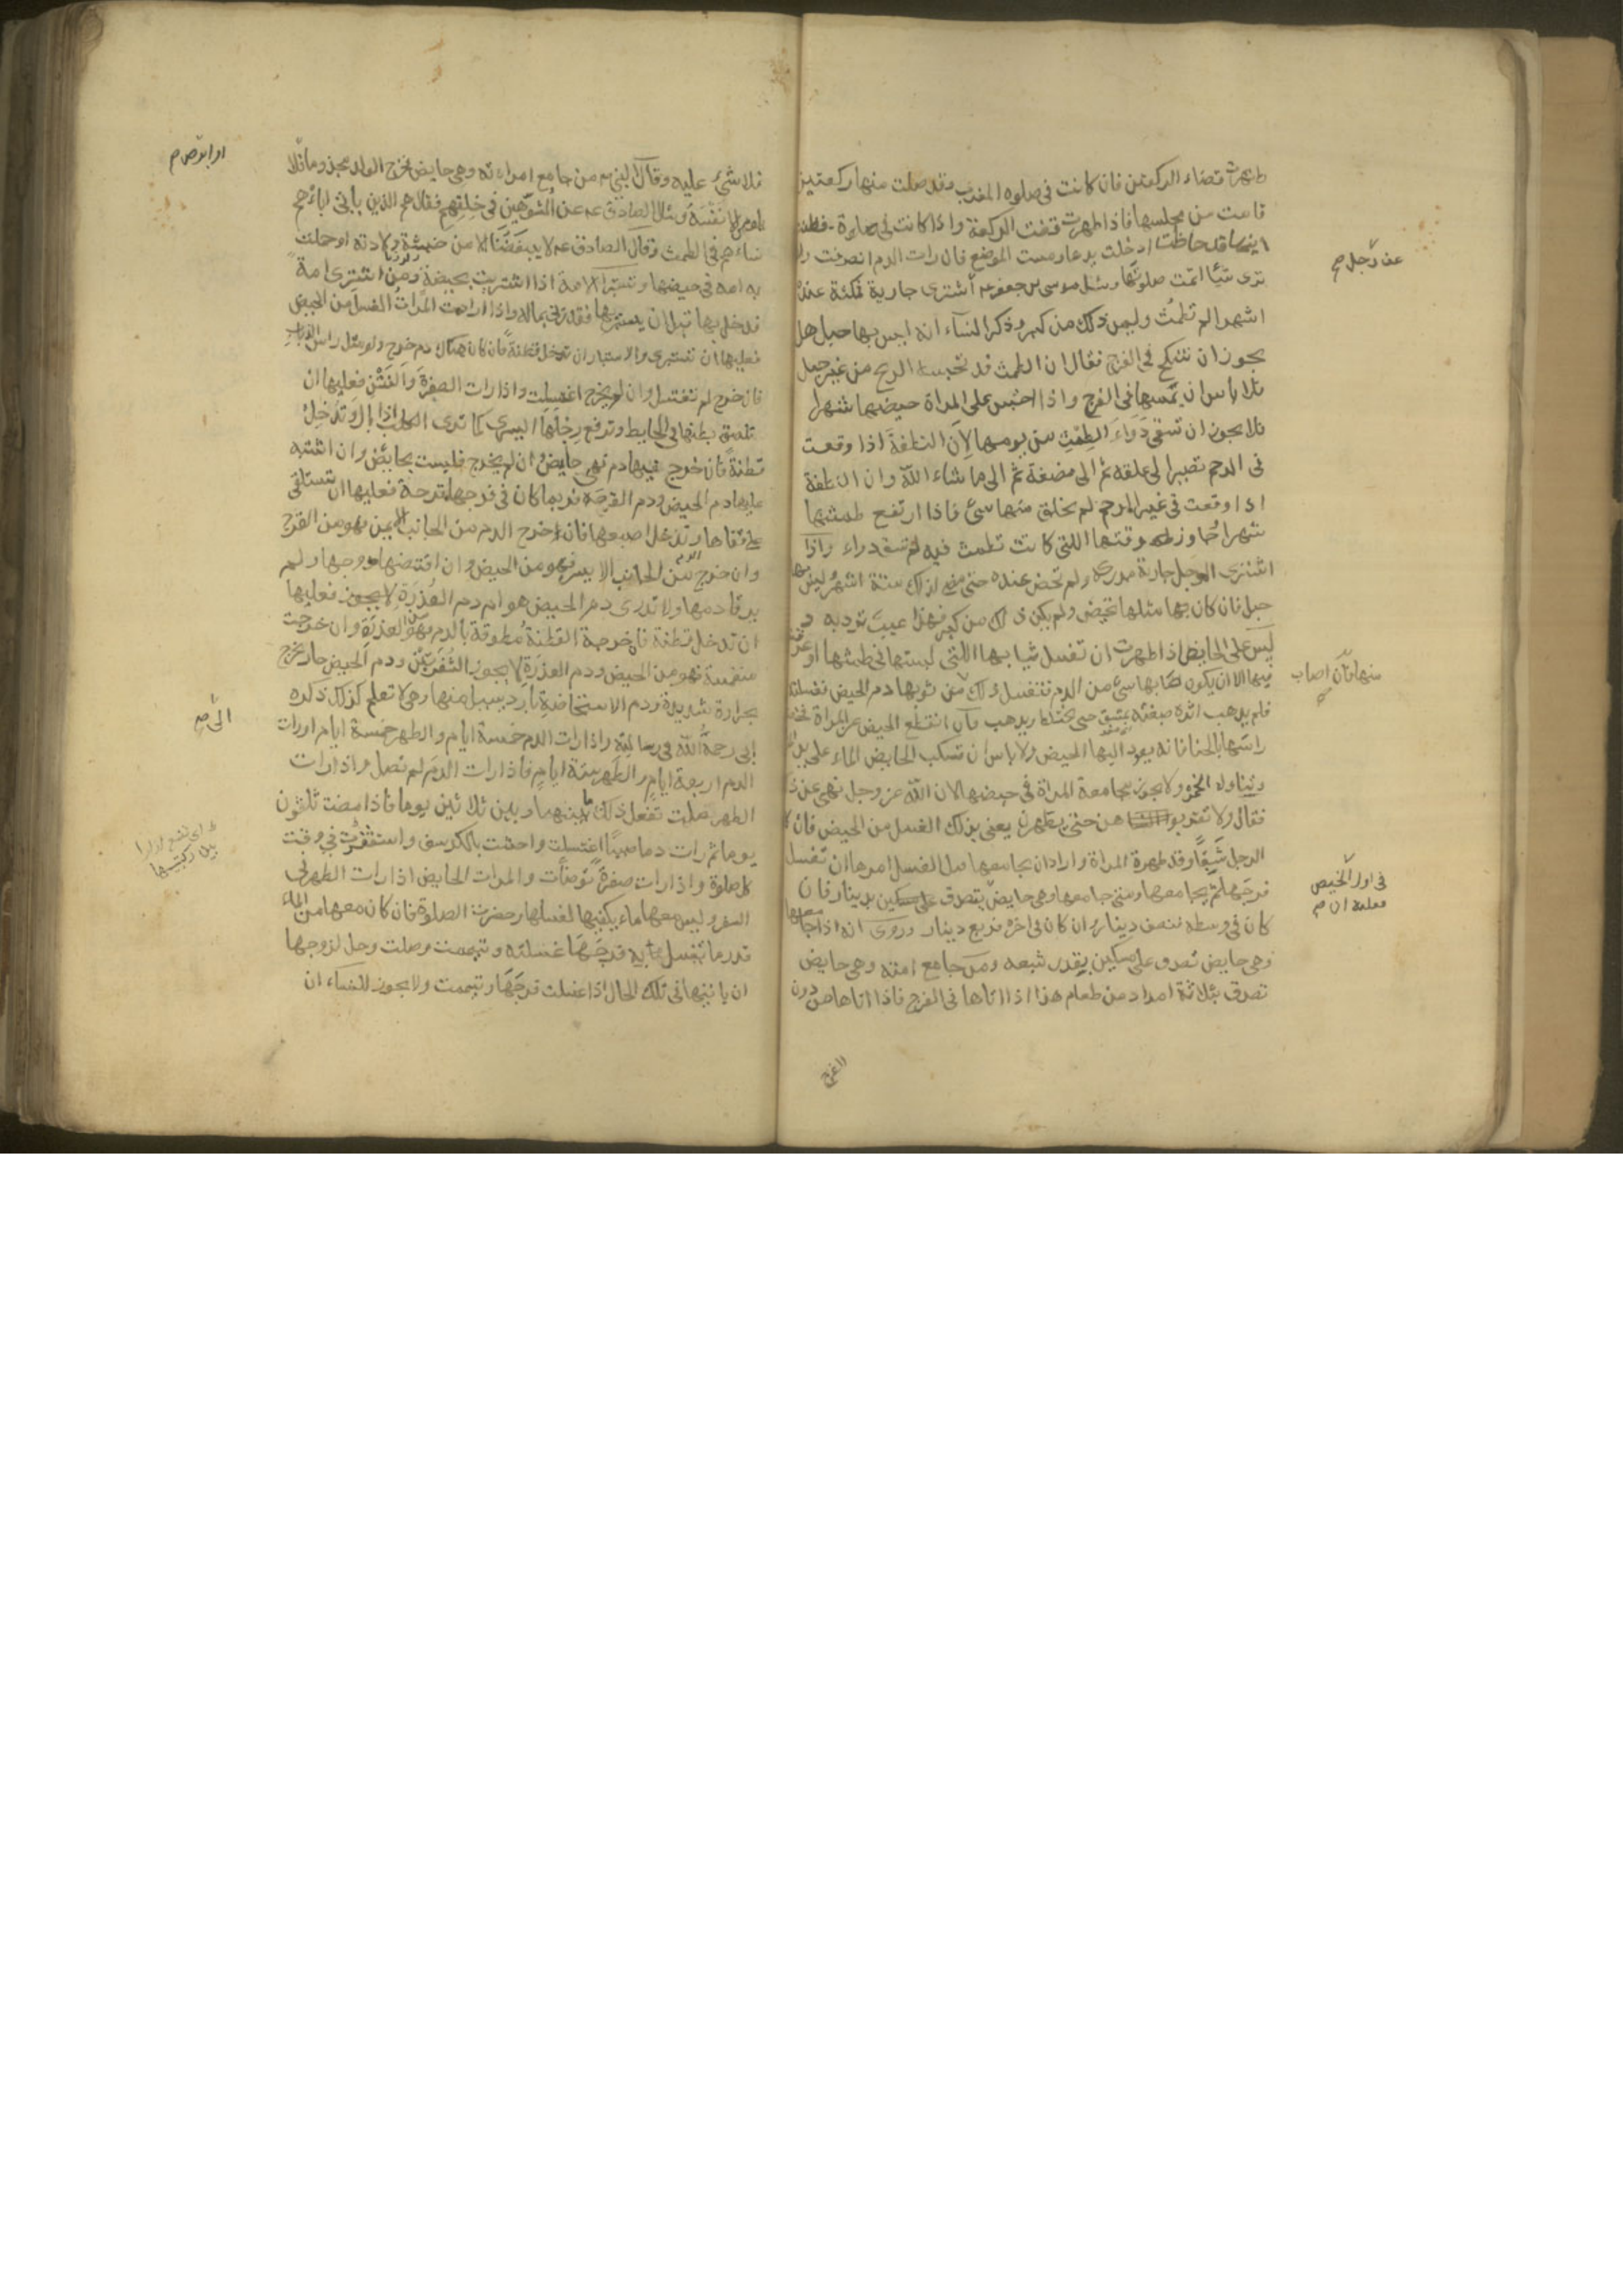 طهرت قضاء الركعتين فان كانت فى صلوه المغرب وقد صلت منها ركعتين
قامت من مجلسها فاذا طهرت قضت الركعة واذا كانت فى صلوة فظنت
انها قد حاظت ادخلت يدها ومست الموضع فان رات الدم انصرفت وان لم
ترى شيأ اتمت صلوتها وسئل موسى بن جعفر عن رجل اشترى جارية فمكثة عنده
عن رجل صح
اشهرا لم تطمث وليس ذلك من كبر وذكر النسآء انه ليس بها حبل هل
يجوز ان تنكح فى الفرج فقال ان الطمث قد تحبسه الريح من غير حبل
فلا باس ان يمسها فى الفرج واذا احتبس على المراة حيضها شهرا
فلا يجوز ان تسقى دواء الطمث من يومها لان النطفة اذا وقعت
فى الرحم تصير الى علقه ثم الى مضغة ثم الى ما شاء الله وان النطفة
اذا وقعت فى غير الرحم لم يخلق منها شئ فاذا ارتفع طمثها
شهرا وجاوز وقتها اللتى كانت تطمث فيه لم تسق دواء واذا
اشترى الرجل جارية مدركه ولم تحض عنده حتى مضى لذلك ستة اشهر ليس بها
حبل فان كان بها مثلها تحيض ولم يكن ذلك من كبر فهذا عيب ترد به و
ليس على الحايض اذا طهرت ان تغسل ثيابها اللتى لبستها فى طمثها او عرقت
فيها الا ان يكون اصابها شئ من الدم فتغسل ذلك من ثوبها دم الحيض فغسلته
منها فان اصاب
فلم يذهب اثره صبغته بمشق حتى يختلط ويذهب وان انقطع الحيض عن المراة فخضبت
راسها بالحنا فانه يعود اليها الحيض ولا باس ان تسكب الحايض الماء على يد
وتناوله الخمرة ولا يجوز مجامعة المراة فى حيضها لان الله عز وجل نهى عن ذلك
فقال ولا تقربوهن حتى يطهرن يعنى بذلك الغسل من الحيض فان كان
الرجل شبقا وقد طهرة المراة واراد ان يجامعها قبل الغسل امرها ان تغسل
فرجها ثم يجامعها ومتى جامعها وهى حايض تصدق على مسكين بدينار فان
فى اول الحيض
فعليه ان صح
كان فى وسطه نصف دينار وان كان فى اخره فربع دينار وروى انه اذا جامعها
وهى حايض تصدق على مسكين بقدر شبعه ومن جامع امته وهى حايض
تصدق بثلاثة امداد من طعام هذا اذا اتاها فى الفرج فاذا اتاها من دون
الفرج
فلا شئ عليه وقال النبى من جامع امراءته وهى حايض فخرج الولد مجذوما فلا
او ابرص صح
يلومن الا نفسه وسئل الصادق عن المشوهين فى خلقهم فقال هم الذين ياتى اباءهم
نساءهم فى الطمث وقال الصادق لا يبغضنا الا من خبثت ولادته او حملت
به امه فى حيضها وتستبرا الامة اذا اشتريت بحيضة ومن اشترى امة
فدخل بها قبل ان يستبريها فقد زنى بماله واذا ارادت المراة الغسل من الحيض
فعليها ان تستبرى والاستبرا ان تدخل قطنة فان كان هناك دم خرج ولو مثل راس الذباب
فان خرج لم تغتسل وان لم يخرج اغتسلت واذا رات الصفرة والنتن فعليها ان
تلصق بطنها فى الحايط وترفع رجلها اليسرى كما ترى الكلب اذا بال وتدخل
قطنة فان خرج فيها دم فهى حايض وان لم يخرج فليست بحايض وان اشتبه
عليها دم الحيض ودم القرحة فربما كان فى فرجها قرحة فعليها ان تستلقى
على قفاها وتدخل اصبعها فان خرج الدم من الجانب الايمن فهو من القرح
وان خرج الدم من الجانب الايسر فهو من الحيض وان افتضها زوجها ولم
يرقا دمها ولا تدرى دم الحيض هو ام دم العذرة فعليها
ان تدخل قطنة فان خرجة القطنة مطوقة بالدم فهو من العذرة وان خرجت
منغمسة فهو من الحيض ودم العذرة لا يجوز الشفرين ودم الحيض حار يخرج
بحرارة شديدة ودم الاستحاضة بارد يسيل منها وهى لا تعلم كذلك ذكره
ابى رحمة الله فى رسالته واذا رات الدم خمسة ايام والطهر خمسة ايام او رات
الىّ صح
الدم اربعة ايام والطهر ستة ايام فاذا رات الدم لم تصل واذا رات
الطهر صلت تفعل ذلك ما بينهما وبين ثلاثين يوما فاذا مضت ثلثون
يوما ثم رات دما صبيبا اغتسلت واحتشت بالكرسف واستثفرت فى وقت
اى تضع ازارا
بين ركبتيها
كل صلوة واذا رات صفرة توضأت والمراة الحايض اذا رات الطهر فى
السفر وليس معها ماء يكفيها لغسلها وحضرت الصلوة فان كان معها من الماء
قدر ما تغسل به فرجها غسلته وتيممت وصلت وحل لزوجها
ان ياتيها فى تلك الحال اذا غسلت فرجها وتيممت ولا يجوز للنساء ان